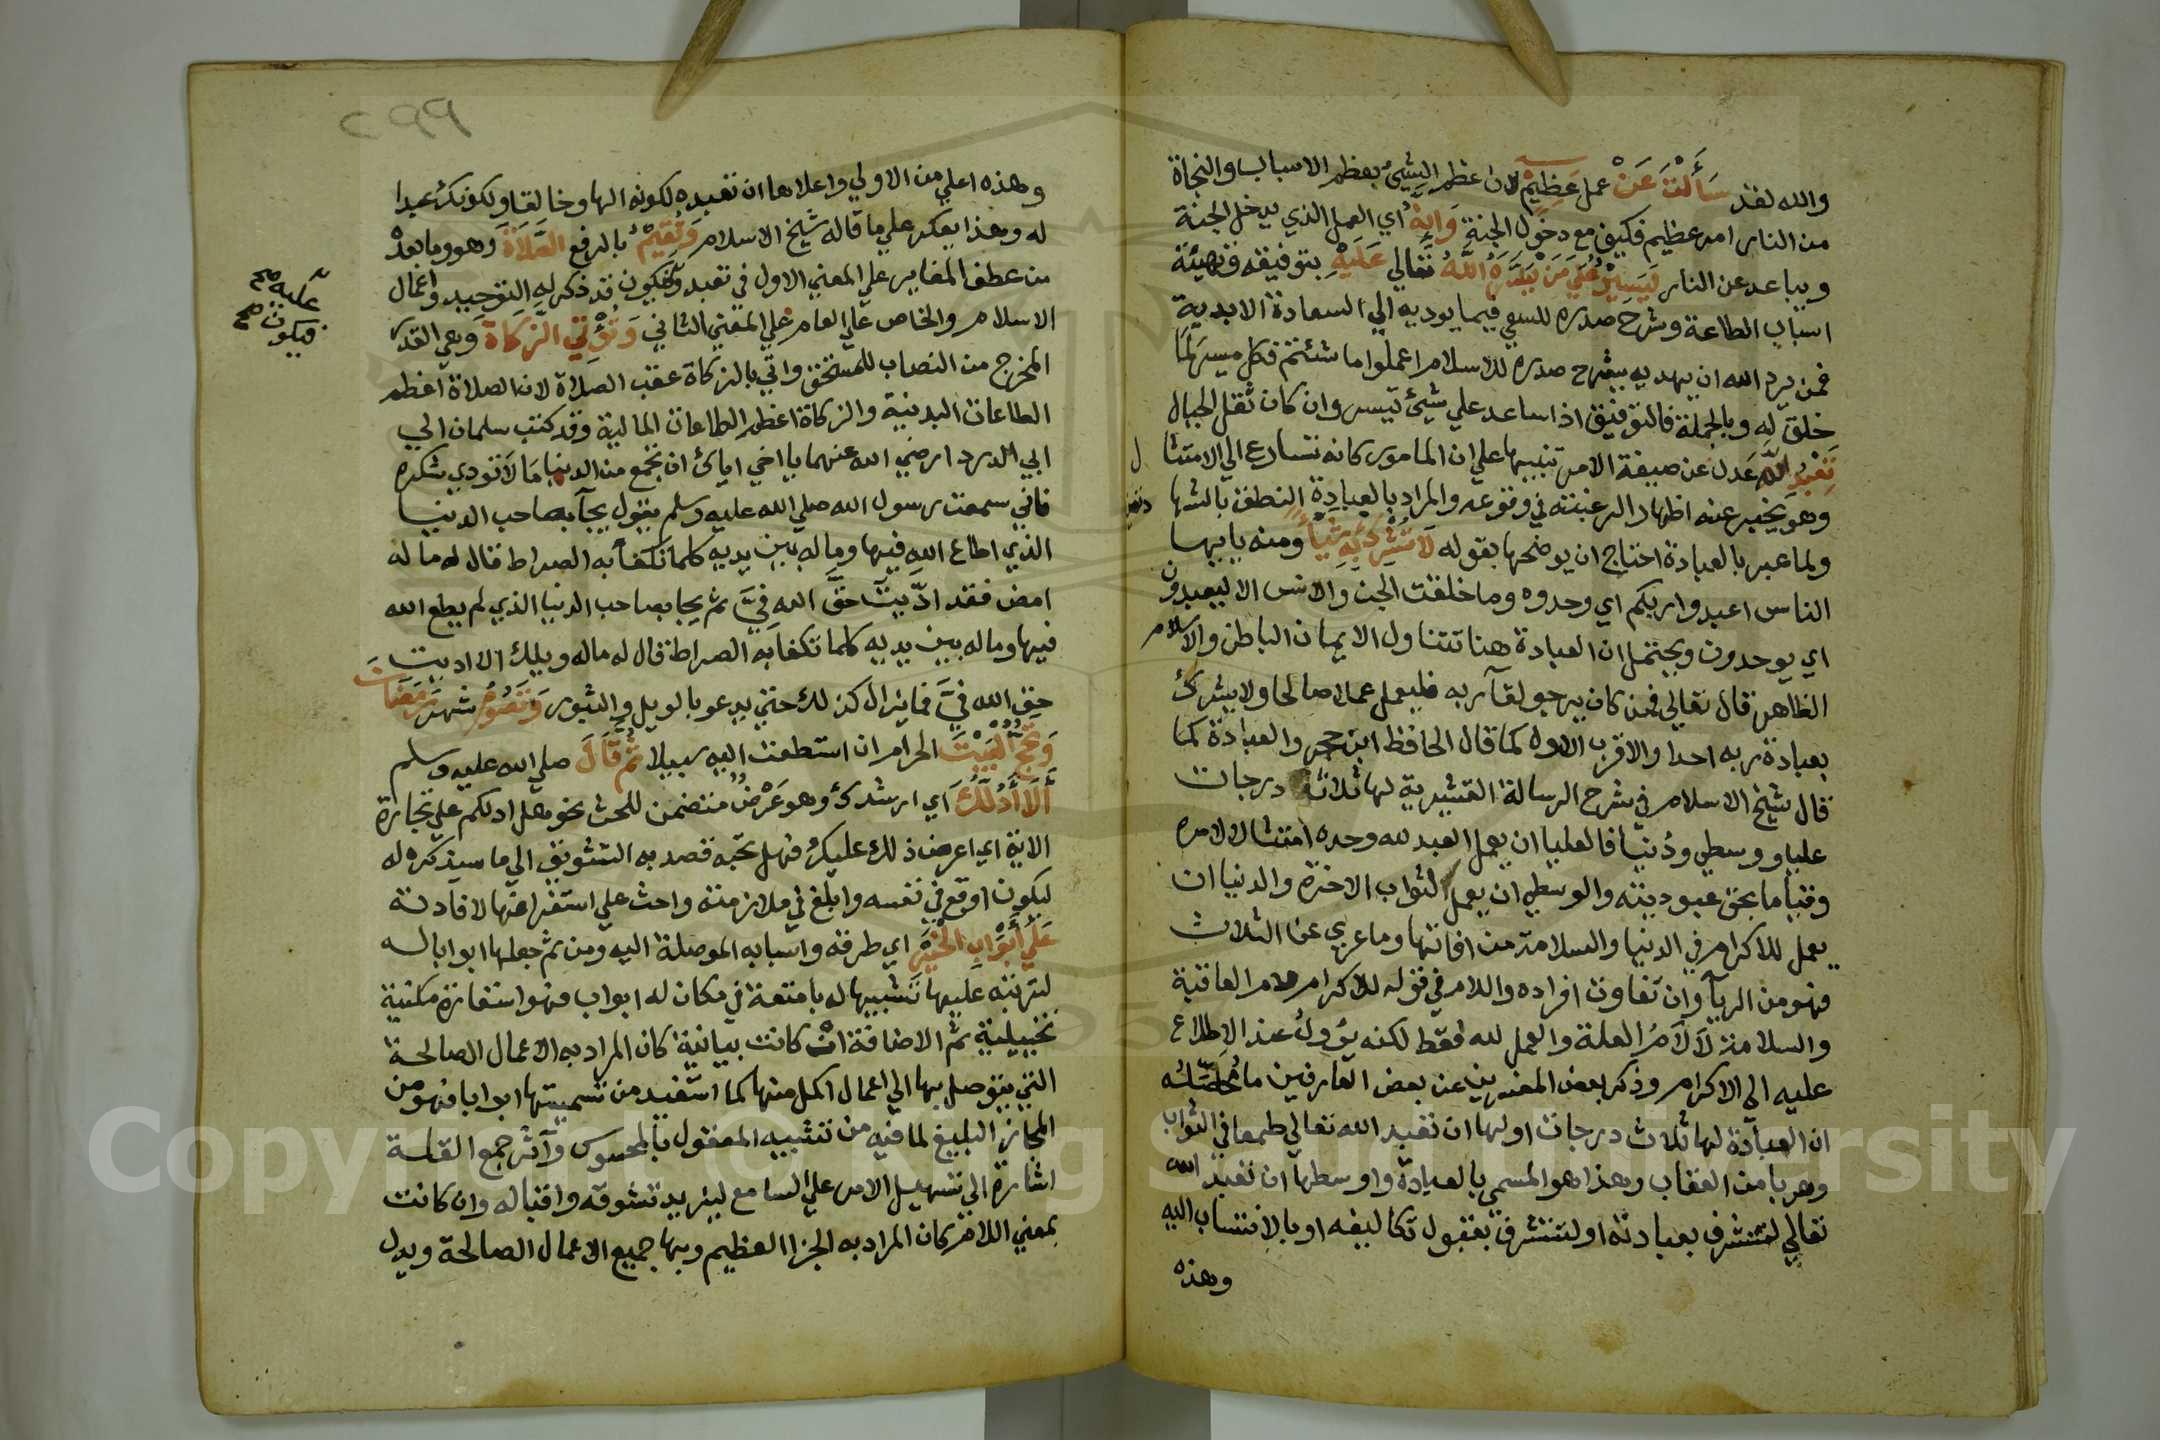 والله لقد سَأَلْتَ عَنْ عمل عَظِيْمٍ لان اعظم الشيئ بعظم الاسباب والنجاة
من النار امر عظيم فكيف مع دخول الجنة وَاِنهُ اي العمل الذي يدخل الجنة
ويباعد عن النار لَيَسِيْرٌ عَلَيَ مَنْ يَسَّرَهُ اللَّهُ تعالي عَلَيْهِ بتوفيقه وتهيئة
اسباب الطاعة وشرح صدره للسعي فيما يوديه الي السعادة الابدية
فمن يرد الله ان يهديه يشرح صدره للاسلام اعملوا ما شئتم فكل ميسر لما
خلق له وبالجملة فالتوفيق اذا ساعد علي شيئ تيسر وان كان ثقل الجبال
تَعْبُدِ اللَّه عَدل عن صيغة الامر تنبيها علي ان المامور كانه تسارع الي الامتثا ل
وهو يخبر عنه اظهار الرغبته في وقوعه والمراد بالعبادة النطق بالشها دتين
ولما عبر بالعبادة احتاج ان يوضحها بقوله لاَ تُشْرِكْ بِهِ شَيْأً ومنه يا ايها
الناس اعبدوا ربكم اي وحدوه وما خلقت الجن والانس الا ليعبدون
اي يوحدون ويحتمل ان العبادة هنا تتناول الايمان الباطن والاسلام
الظاهر قال تعالي فمن كان يرجو لقآ ربه فليعمل عملا صالحا ولا يشرك
بعبادة ربه احدا والاقرب الاول كما قال الحافظ ابن حجر والعبادة كما
قال شيخ الاسلام في شرح الرسالة القشيرية لها ثلاثة درجات
عليا ووسطي ودُنيا فالعليا ان يعمل العبد لله وحده امتثالا لامره
وقياما بحق عبوديته والوسطي ان يعمل لثواب الاخرة والدنيا ان
يعمل للاكرام في الدنيا والسلامة من افاتها وما عري عن الثلاث
فهو من الريآ وان تفاوت افراده واللام في قوله للاكرام لام العاقبة
والسلامة لاَ لاَمُ العلة والعمل لله فقط لكنه يؤول عند الاطلاع
عليه الي الاكرام وذكر بعض المفسرين عن بعض العارفين ما مُحَصَّلُه
ان العبآدة لها ثلاث درجات اولها ان تعبد الله تعالي طمعا في الثواب
وهربا من العقاب وهذا هو المسمي بالعبادة واوسطها ان تعبد الله
تعالي لتتشرف بعبادته او لتتشرف بقبول تكاليفه او بالانتساب اليه
وهذه
٢٩٩
وهذه اعلي من الاولي واعلاها ان تعبده لكونه الها وخالقا ولكونك عبدا
له وهذا يعكر علي ما قاله شيخ الاسلام وَتُقِيْمُ بالرفع الصَّلاَةَ وهو وما بعدْ
من عطف المغاير علي المعني الاول في تعبد وتكون قد ذكر له التوحيد واعمال
الاسلام والخاص علي العام علي المعني الثاني وَتُؤْتِي الزَّكَاةَ وهي القدر
المخرج من النصاب للمستحق واتي بالزكاة عقب الصلاة لان الصلاة اعظم
الطاعات البدنية والزكاة اعظم الطاعات المالية وقد كتب سلمان الي
ابي الدردا رضي الله عنهما يا اخي اياك ان تجمع من الدنيا مَا لاَ تودي شكره
فاني سمعت رسول الله صلي الله عليه وسلم يقول يجآ بصاحب الدنيا
الذي اطاع الله فيها وماله بين يديه كلما تكفا به الصراط قال له ماله
امض فقد ادّيت حقّ الله فيَّ ثم يجا بصاحب الدنيا الذي لم يطع الله
فيها وماله بين يديه كلما تكفا به الصراط قال له ماله ويلك الا اديت
حق الله فيَّ فما يزال كذلك حتي يدعو بالويل والثبور وَتَصُوْمُ شهرَ رَمَضَانَ
وَتَحُجَّ الْبَيْتَ الحرام ان استطعت اليه سبيلا ثُمَّ قَالَ صلي الله عليه وسلم
أَلاَ أَدُلُّكَ اي ارشدك وهو عَرْضٌ متضمن للحث نحو هل ادلكم علي تجارة
الاية اي اعرض ذلك عليكُم فهل تحبه قصد به التشويق الي ما سيذكره له
ليكون اوقع في نفسه وابلغ في ملازمته واحث علي استفراغها لافادته
عَلَيَ أَبْوَابِ الْخَيْرِ اي طرقه واسبابه الموصلة اليه ومن ثم جعلها ابوابا له
لترتبه عليها تشبيها له بامتعة في مكان له ابواب فهو استعارة مكنية
تخييلية ثم الاضافة اِنْ كانت بيانية كان المراد به الاعمال الصالحة
التي يتوصل بها الي اعمال اكمل منها كما استفيد من تسميتها ابوابا فهو من
المجاز البليغ لما فيه من تشبيه المعقول بالمحسوس وآثر جمع القلة
اشارة الي تسهيل الامر علي السامع ليزيد تشوقه واقباله وان كانت
بمعني اللام كان المراد به الجزا العظيم وبها جميع الاعمال الصالحة ويدل
عليه صح
فيكون صح
Copyright © King Saud University